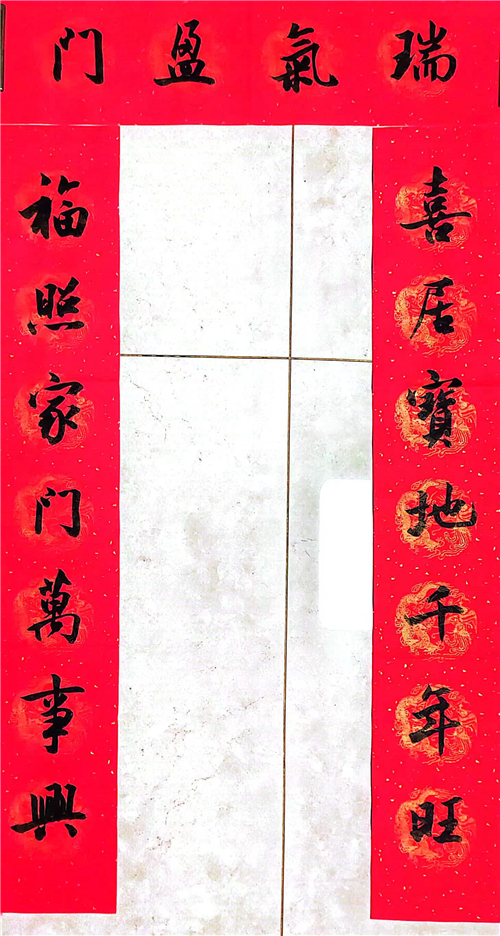 瑞氣盈门
喜居寳地千年旺
福照家门萬事興